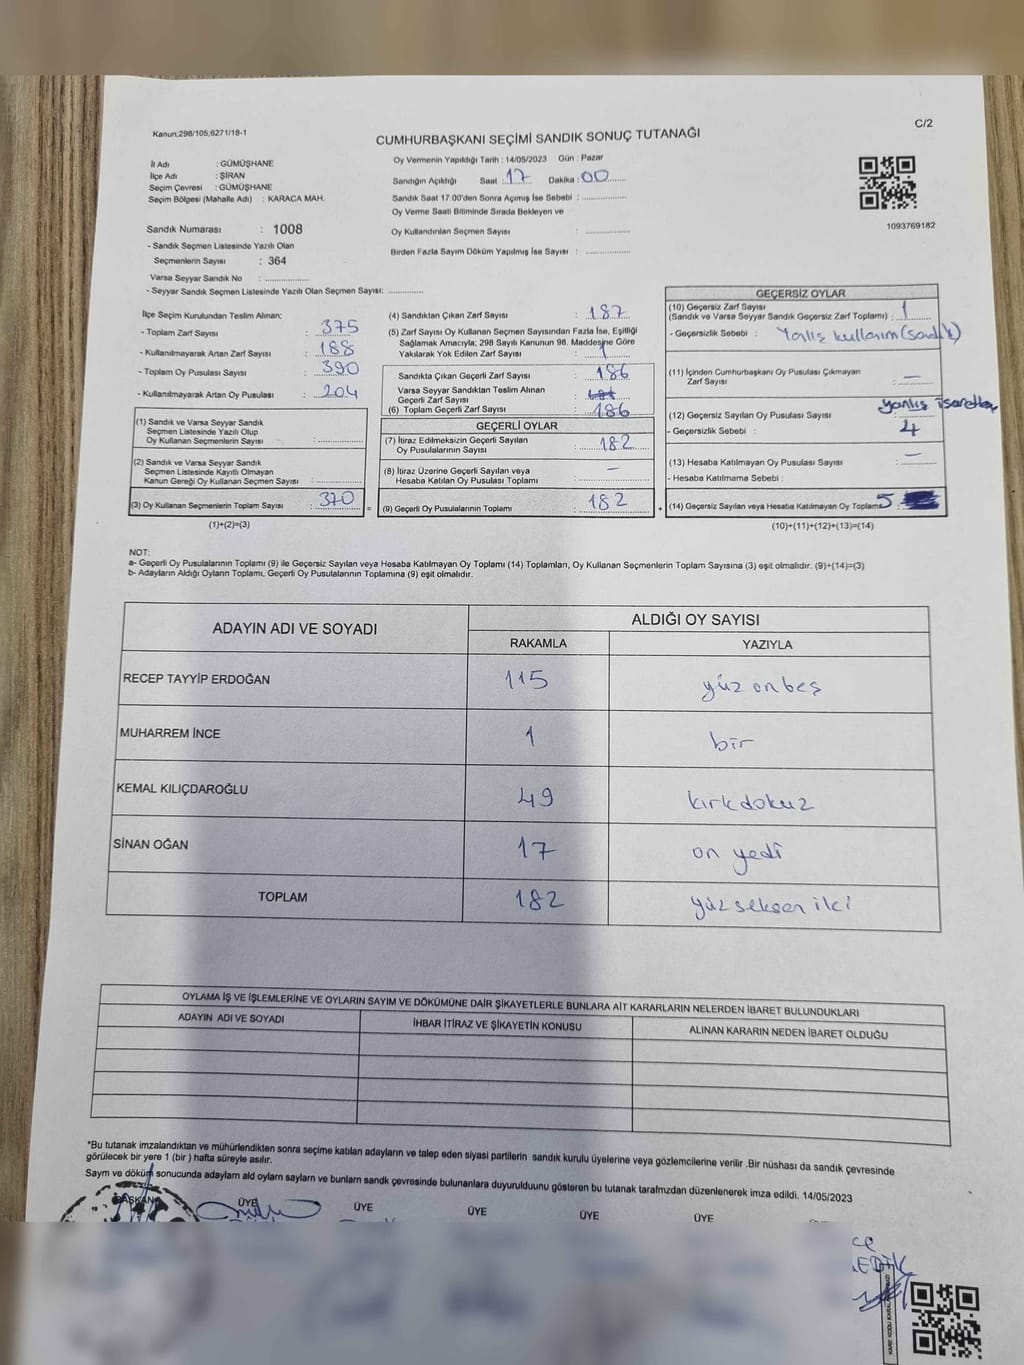 Kanun;298/105,6271/18-1
C/2
CUMHURBAŞKANI SEÇİMİ SANDIK SONUÇ TUTANAĞI
İl Adı : GÜMÜŞHANE
İlçe Adı : ŞİRAN
Seçim Çevresi : GÜMÜŞHANE
Seçim Bölgesi (Mahalle Adı) : KARACA MAH.
Sandık Numarası : 1008
- Sandık Seçmen Listesinde Yazılı Olan
Seçmenlerin Sayısı : 364
Varsa Seyyar Sandık No : ..............
- Seyyar Sandık Seçmen Listesinde Yazılı Olan Seçmen Sayısı: ............
Oy Vermenin Yapıldığı Tarih : 14/05/2023 Gün : Pazar
Sandığın Açıldığı Saat : 17 Dakika : 00
Sandık Saat 17.00'den Sonra Açımış İse Sebebi : ..............
Oy Verme Saati Bitiminde Sırada Bekleyen ve
Oy Kullandırılan Seçmen Sayısı : ..............
Birden Fazla Sayım Döküm Yapılmış İse Sayısı : ..............
1093769182
İlçe Seçim Kurulundan Teslim Alınan:
- Toplam Zarf Sayısı : 375
- Kullanılmayarak Artan Zarf Sayısı : 188
- Toplam Oy Pusulası Sayısı : 390
- Kullanılmayarak Artan Oy Pusulası : 204
(1) Sandık ve Varsa Seyyar Sandık
Seçmen Listesinde Yazılı Olup
Oy Kullanan Seçmenlerin Sayısı : ..............
(2) Sandık ve Varsa Seyyar Sandık
Seçmen Listesinde Kayıtlı Olmayan
Kanun Gereği Oy Kullanan Seçmen Sayısı : ..............
(3) Oy Kullanan Seçmenlerin Toplam Sayısı : 370
(1)+(2)=(3)
(4) Sandıktan Çıkan Zarf Sayısı : 187
(5) Zarf Sayısı Oy Kullanan Seçmen Sayısından Fazla İse, Eşitliği
Sağlamak Amacıyla; 298 Sayılı Kanunun 98. Maddesine Göre
Yakılarak Yok Edilen Zarf Sayısı : 1
Sandıkta Çıkan Geçerli Zarf Sayısı : 186
Varsa Seyyar Sandıktan Teslim Alınan
Geçerli Zarf Sayısı :
(6) Toplam Geçerli Zarf Sayısı : 186
GEÇERLİ OYLAR
(7) İtiraz Edilmeksizin Geçerli Sayılan
Oy Pusulalarının Sayısı : 182
(8) İtiraz Üzerine Geçerli Sayılan veya
Hesaba Katılan Oy Pusulası Toplamı : –
(9) Geçerli Oy Pusulalarının Toplamı : 182
GEÇERSİZ OYLAR
(10) Geçersiz Zarf Sayısı
(Sandık ve Varsa Seyyar Sandık Geçersiz Zarf Toplamı) : 1
- Geçersizlik Sebebi : Yanlış kullanım (sandık)
(11) İçinden Cumhurbaşkanı Oy Pusulası Çıkmayan
Zarf Sayısı : –
yanlış işaretleme
(12) Geçersiz Sayılan Oy Pusulası Sayısı
- Geçersizlik Sebebi : 4
(13) Hesaba Katılmayan Oy Pusulası Sayısı : –
- Hesaba Katılmama Sebebi :
(14) Geçersiz Sayılan veya Hesaba Katılmayan Oy Toplamı 5
(10)+(11)+(12)+(13)=(14)
NOT:
a- Geçerli Oy Pusulalarının Toplamı (9) ile Geçersiz Sayılan veya Hesaba Katılmayan Oy Toplamı (14) Toplamları, Oy Kullanan Seçmenlerin Toplam Sayısına (3) eşit olmalıdır. (9)+(14)=(3)
b- Adayların Aldığı Oyların Toplamı, Geçerli Oy Pusulalarının Toplamına (9) eşit olmalıdır.
ADAYIN ADI VE SOYADI
ALDIĞI OY SAYISI
RAKAMLA YAZIYLA
RECEP TAYYİP ERDOĞAN 115 yüz on beş
MUHARREM İNCE 1 bir
KEMAL KILIÇDAROĞLU 49 kırkdokuz
SİNAN OĞAN 17 on yedi
TOPLAM 182 yüz seksen iki
OYLAMA İŞ VE İŞLEMLERİNE VE OYLARIN SAYIM VE DÖKÜMÜNE DAİR ŞİKAYETLERLE BUNLARA AİT KARARLARIN NELERDEN İBARET BULUNDUKLARI
ADAYIN ADI VE SOYADI İHBAR İTİRAZ VE ŞİKAYETİN KONUSU ALINAN KARARIN NEDEN İBARET OLDUĞU
*Bu tutanak imzalandıktan ve mühürlendikten sonra seçime katılan adayların ve talep eden siyasi partilerin sandık kurulu üyelerine veya gözlemcilerine verilir .Bir nüshası da sandık çevresinde
görülecek bir yere 1 (bir ) hafta süreyle asılır.
Sayım ve döküm sonucunda adayların aldı oyların sayların ve bunların sandk çevresinde bulunanlara duyurulduunu gösteren bu tutanak tarafmzdan düzenlenerek imza edildi. 14/05/2023
BAŞKAN ÜYE ÜYE ÜYE ÜYE ÜYE